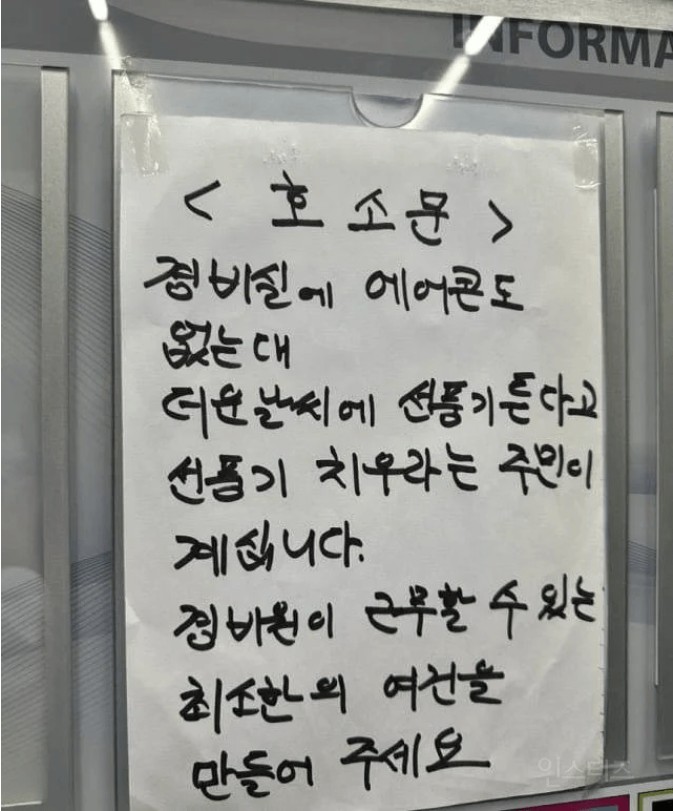 INFORMA
< 호소문 >
경비실에 에어콘도
없는대
더운날씨에 선풍기튼다고
선풍기 치우라는 주민이
계십니다.
경비원이 근무할 수 있는
최소한의 여건을
만들어 주세요
인스티즈